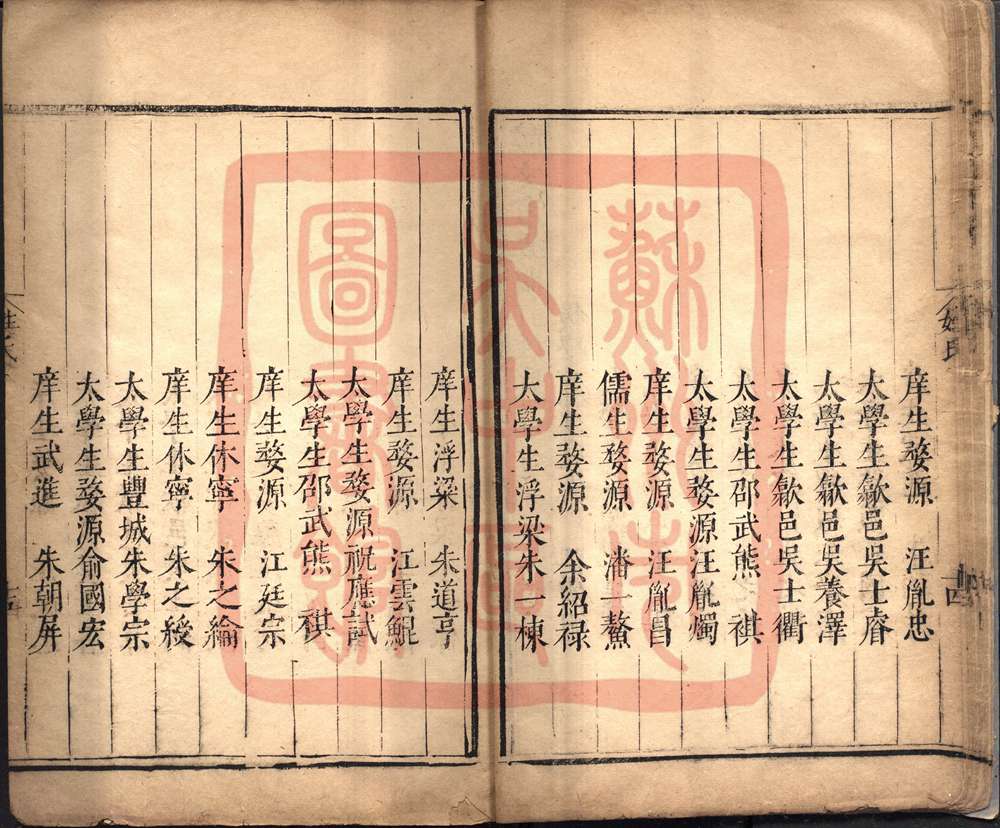 姓氏
十四
庠生婺源 汪胤忠
太學生歙邑吳士睿
太學生歙邑吳養澤
太學生歙邑吳士衢
太學生邵武熊 祺
太學生婺源汪胤燭
庠生婺源 汪胤昌
儒生婺源 潘一鰲
庠生婺源 余紹祿
大學生浮梁朱一棟
庠生浮梁 朱道亨
庠生婺源 江雲鯤
太學生婺源祝應試
太學生邵武熊 祺
庠生婺源 江廷宗
庠生休寧 朱之綸
庠生休寧 朱之綬
太學生豐城朱學宗
太學生婺源俞國宏
庠生武進 朱朝屏
姓氏
蘇州市
吳中區
圖書館